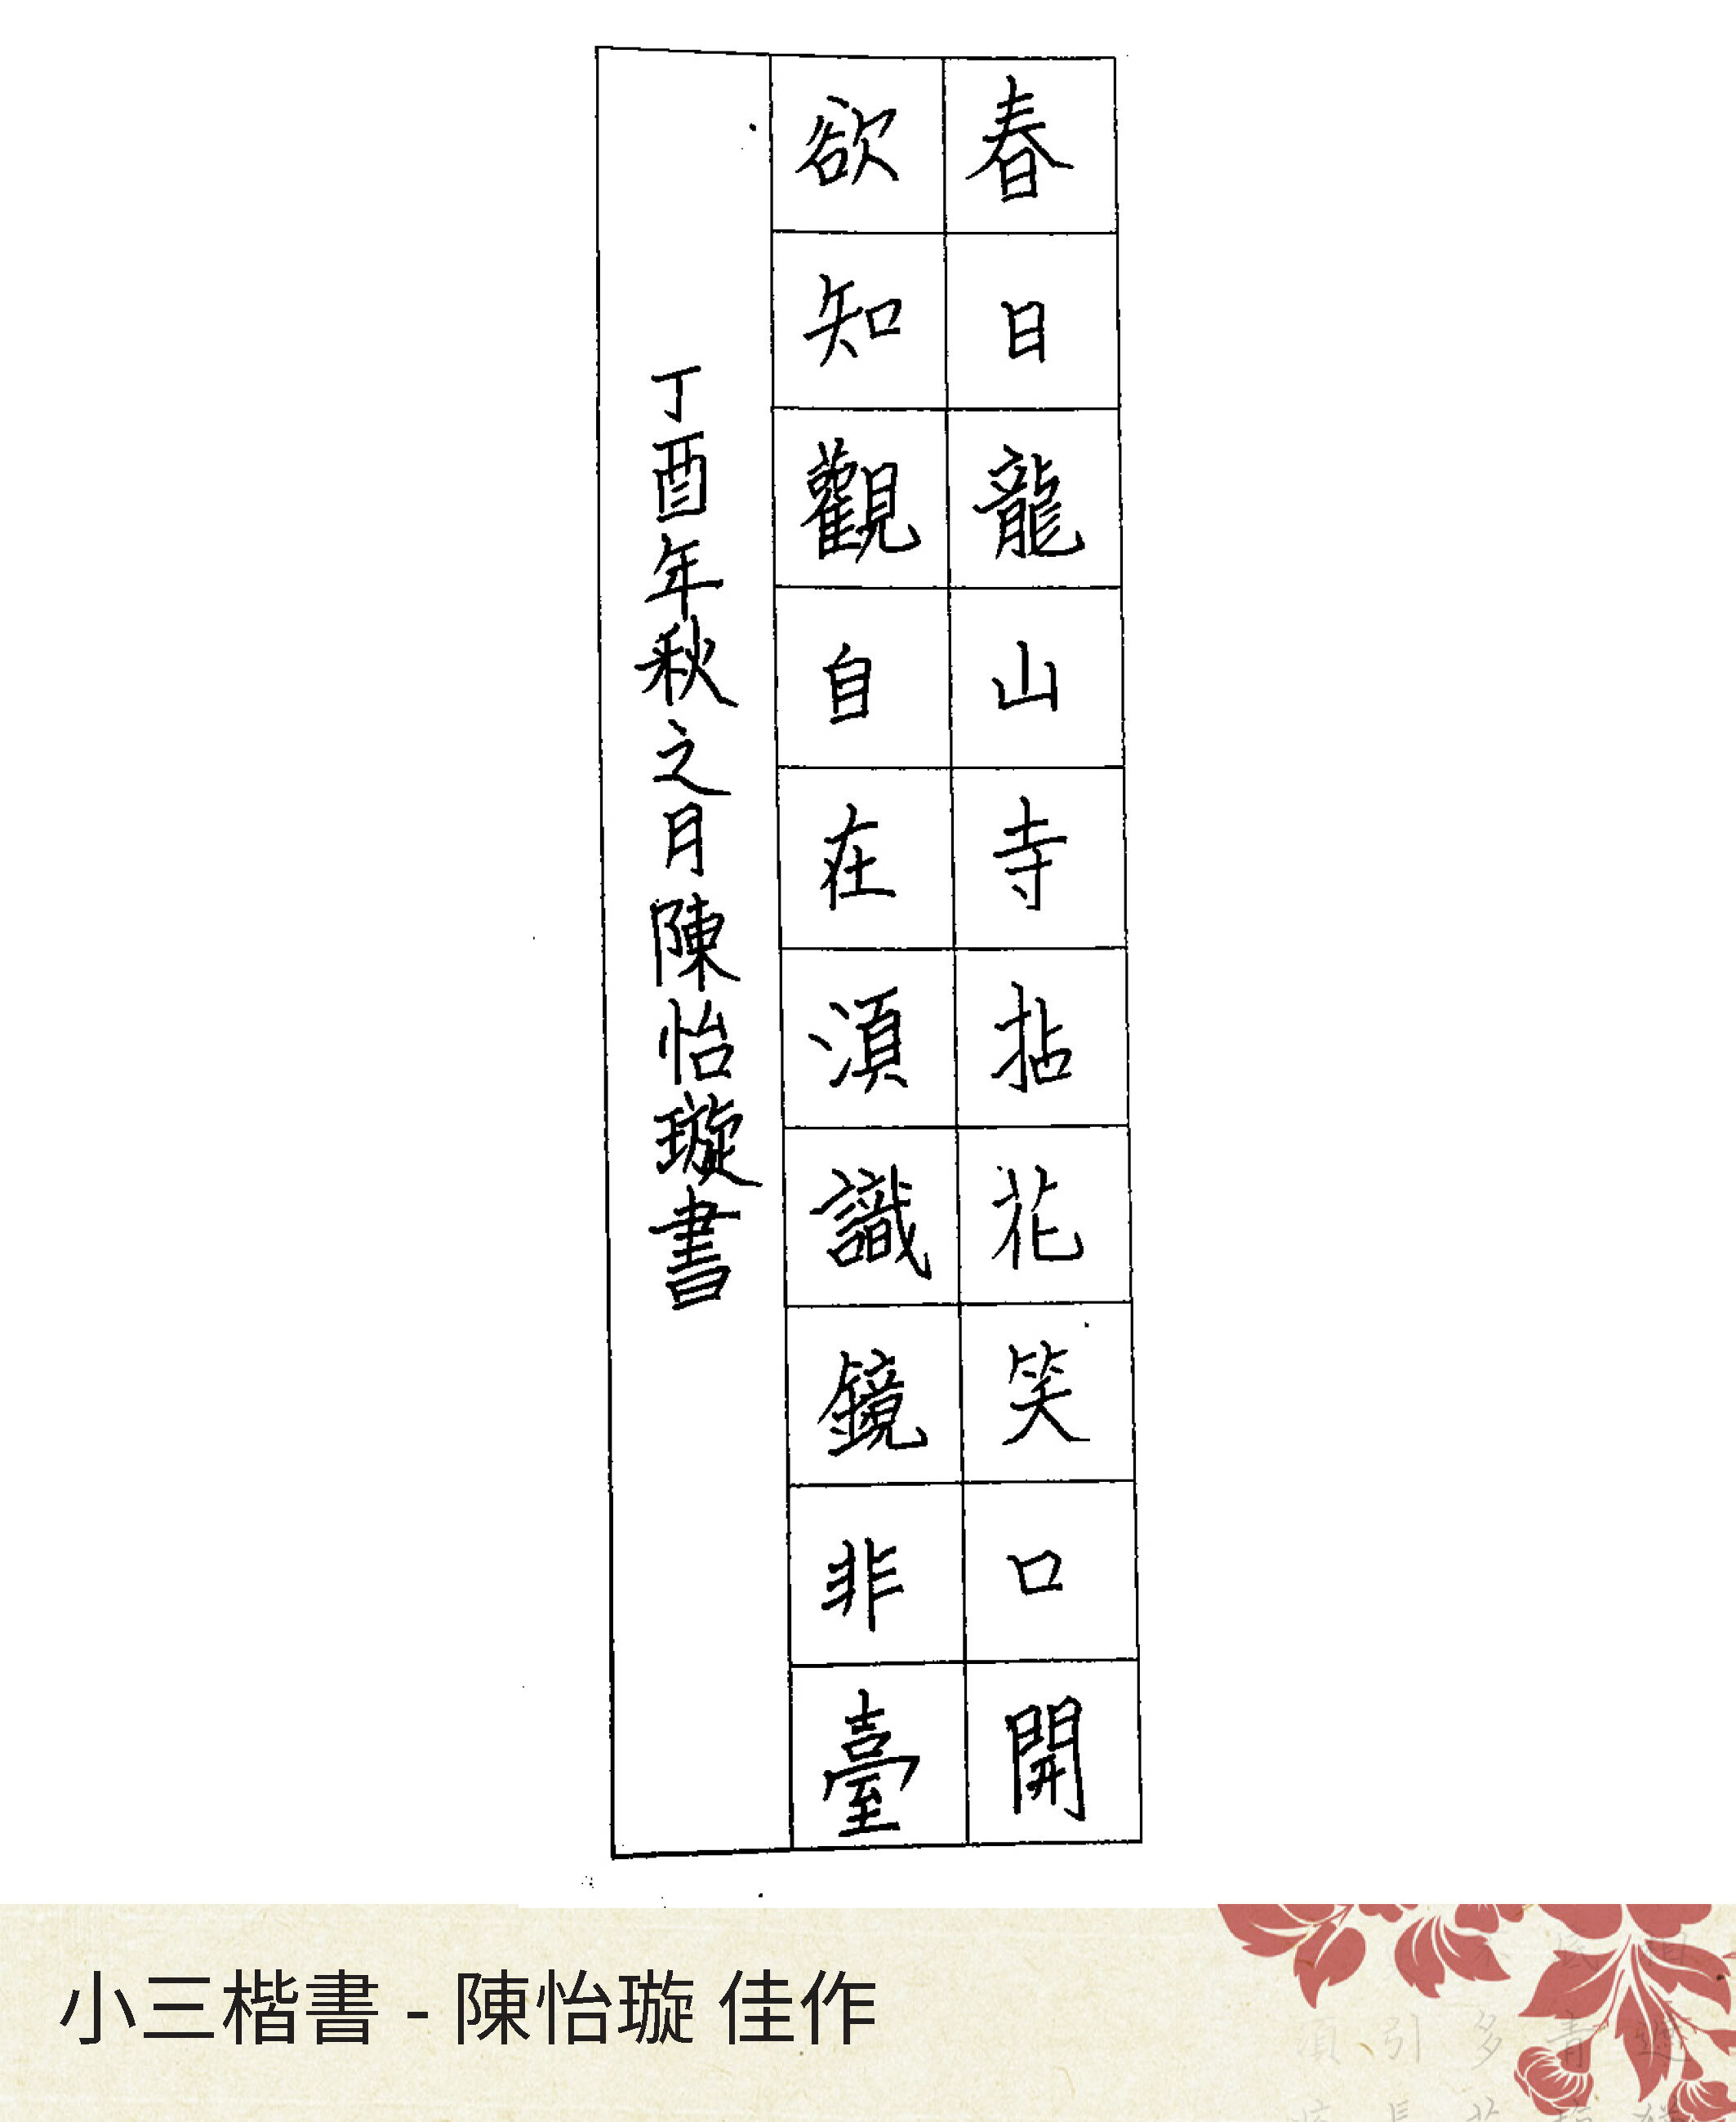 春日龍山寺拈花笑口開
欲知觀自在湏識鏡非臺
丁酉年秋之月陳怡璇書
小三楷書 - 陳怡璇 佳作